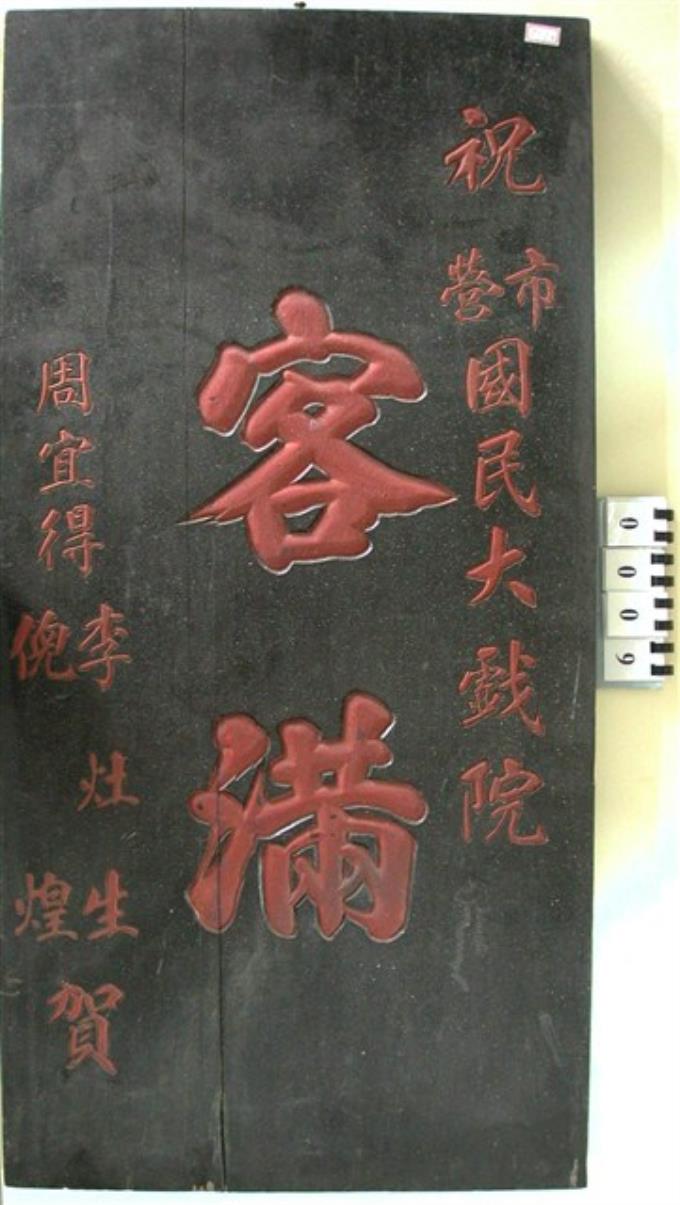 祝
市營國民大戲院
客滿
周宜得
李灶生
倪煌
賀
0009